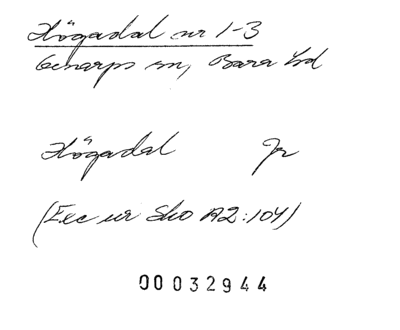 Högadal nr 1-3
Genarps sn, Bara hd
Högadal Jr
(Exc ur Sko A2:104)
00032944